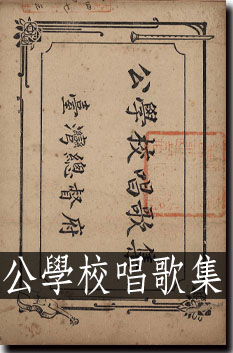 公學校唱歌集
臺灣總督府
公學校唱歌集